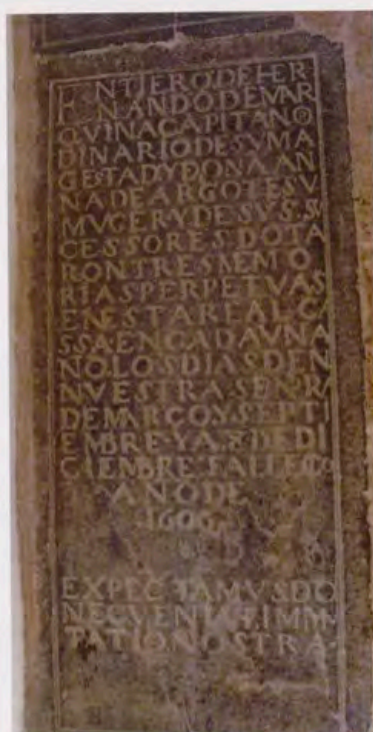 ENTIERO DE HER
NANDO DE MAR
QVINA CAPITAN OR
DINARIO DE SV MA
GESTAD Y DONA AN
NA DE ARGOTE SV
MVGER Y DE SVS SV
CESSORES DOTA
RON TRES MEMO
RIAS PERPETVAS
EN ESTA REAL CA
SSA EN CADA VN A
NO LOS DIAS DE N
NVESTRA SENRA
DE MARCO Y SEPTI
EMBRE Y A 8 DE DI
CIEMBRE FALLECIO
ANO DE
1606
EXPECTAMVS DO
NEC VENIAT IMMV
TATIO NOSTRA